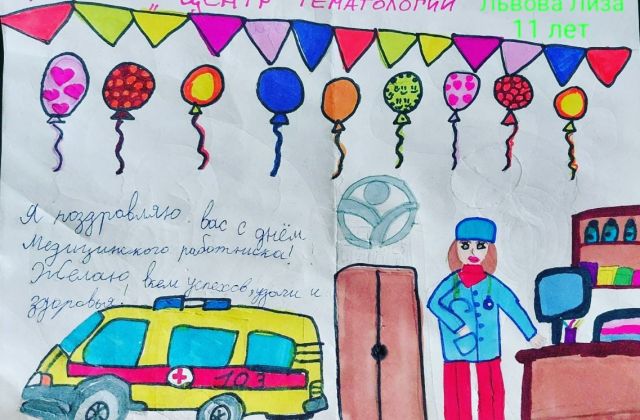 „ ЦЕНТР ГЕМАТОЛОГИИ
Львова Лиза
11 лет
Я поздравляю вас с днём
Медицинского работника!
Желаю всем успехов, удачи и
здоровья!
103